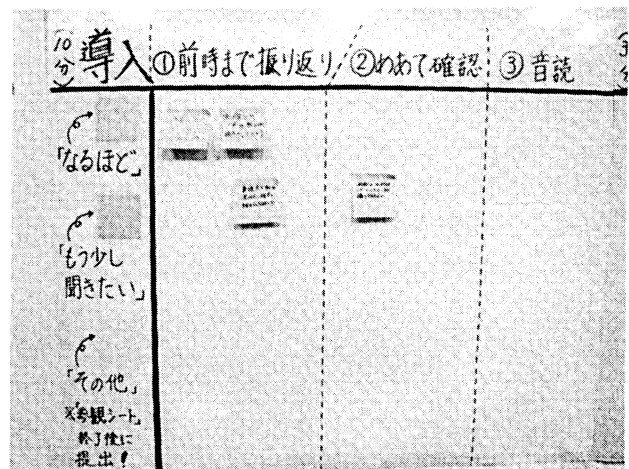 (10分)
導入
①前時まで振り返り
②めあて確認
③音読
「なるほど」
「もう少し
聞きたい」
「その他」
※「参観シート」
終了後に
提出!